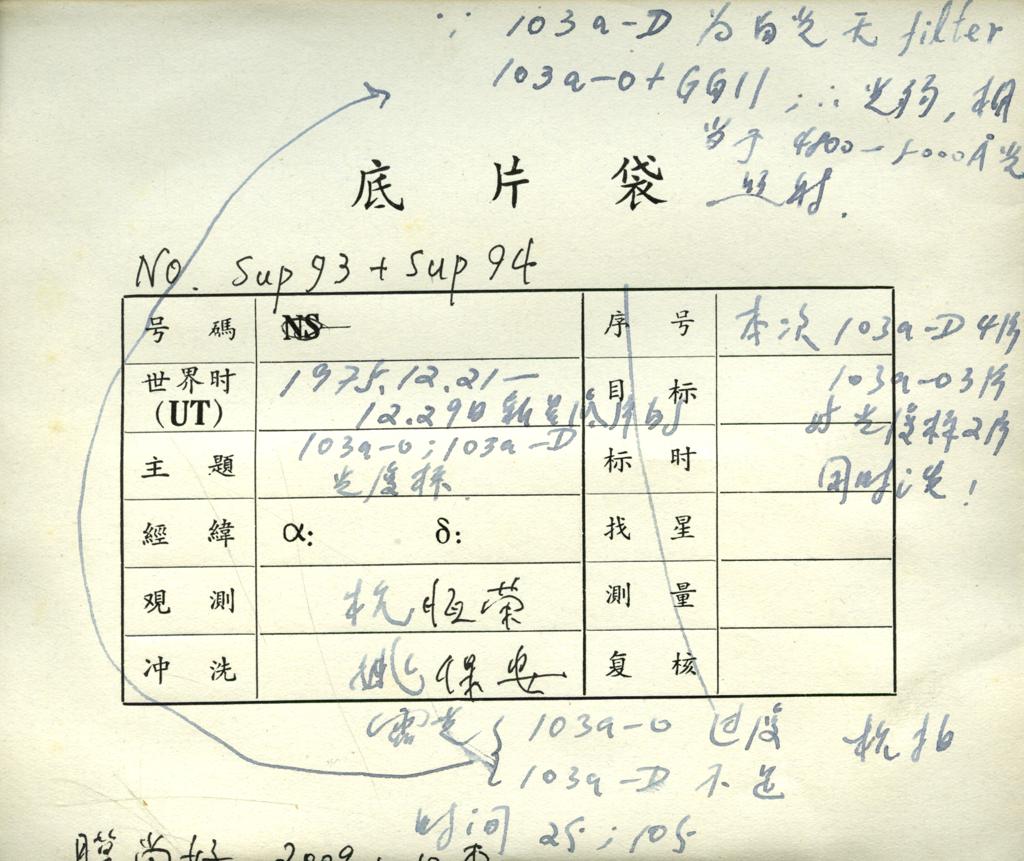 ∵ 103a-D 为白光无 filter
103a-O + GG11 ; ∴ 光弱, 相
当于 4800-5000Å 光
照射.
底片袋
NO. Sup 93 + Sup 94
号碼 NS 序号 本次 103a-D 4片
世界时 1975.12.21— 目标 103a-O 3片
(UT) 12.29日新星 片的 对光度标2片
主題 103a-O; 103a-D 标时 同时 !
光度标.
經緯 α: δ: 找星
观測 杭恒荣 測量
冲洗 姚保安 复核
露光 { 103a-O 过度 杭拍
103a-D 不足
时间 25; 105
2009.